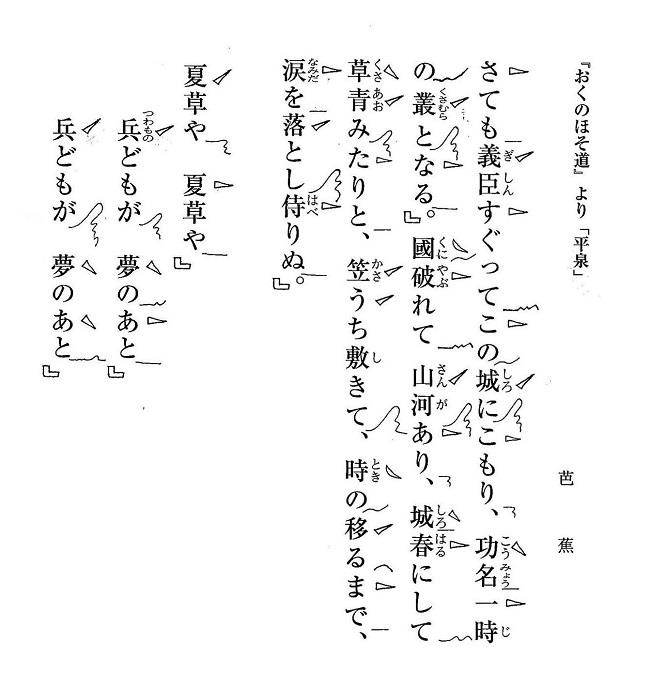 『おくのほそ道』より「平泉」
芭蕉
さても義臣すぐってこの城にこもり、功名一時
の叢となる。』國破れて山河あり、城春にして
草青みたりと、笠うち敷きて、時の移るまで、
涙を落とし侍りぬ。』
夏草や 夏草や』
兵どもが 夢のあと』
兵どもが 夢のあと』